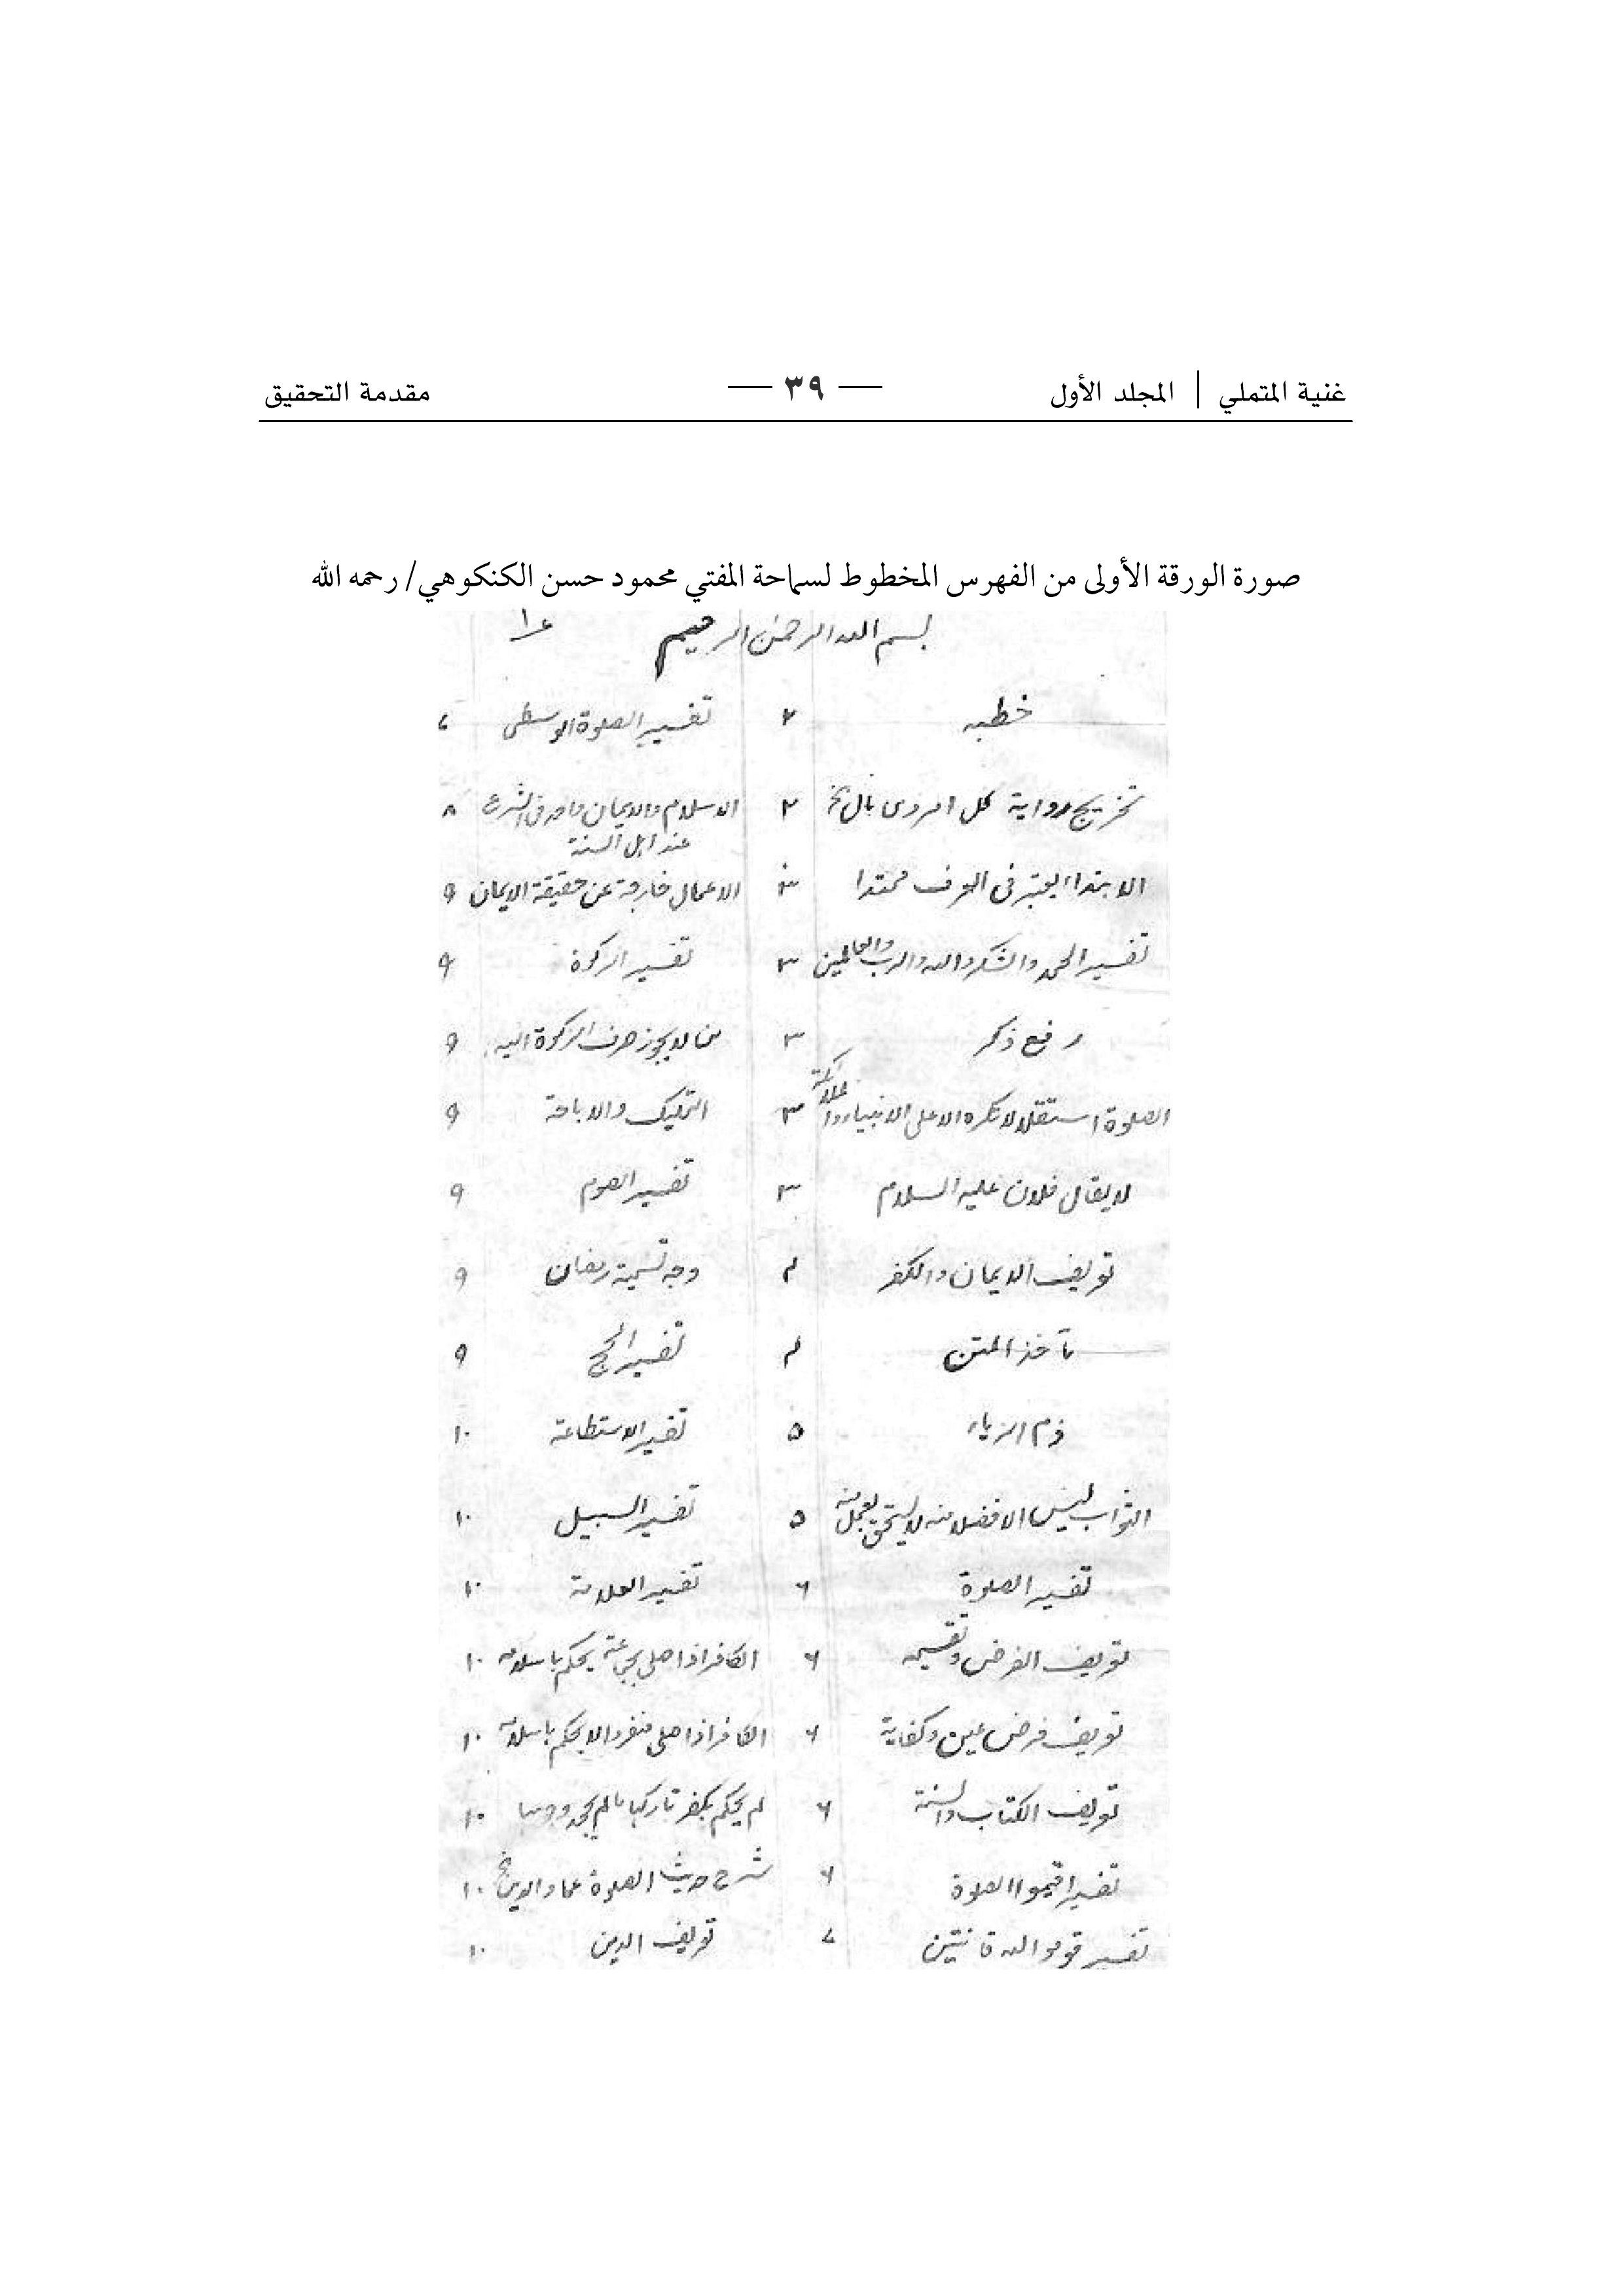 غنية المتملي | المجلد الأول — ٣٩ — مقدمة التحقيق
صورة الورقة الأولى من الفهرس المخطوط لسماحة المفتي محمود حسن الكنكوهي/ رحمه الله
بسم الله الرحمن الرحيم
خطبه ٢ تفسير الصلوة الوسطى ٧
تخريج رواية كل امر ذى بال الخ ٢ الاسلام والايمان واحد فى الشرع ٨
عند اهل السنة
الابتداء يعتبر فى العرف ممتدا ٣ الاعمال خارجة عن حقيقة الايمان ٩
تفسير الحمد والشكر والله والرب والعالمين ٣ تفسير الزكوة ٩
رفع ذكر ٣ من لا يجوز صرف الزكوة اليه ٩
الصلوة استقلالا تكره الا على الانبياء والملائكة ٣ التمليك والاباحة ٩
لا يقال فلان عليه السلام ٣ تفسير الصوم ٩
تعريف الايمان والكفر ٤ وجه تسمية رمضان ٩
مآخذ المتن ٤ تفسير الحج ٩
ذم الرياء ٥ تفسير الاستطاعة ١٠
الثواب ليس الا فضلا منه لا يستحق بعمل منه ٥ تفسير السبيل ١٠
تفسير الصلوة ٦ تفسير العلامة ١٠
تعريف الفرض وتقسيمه ٦ الكافر اذا صلى بجماعة يحكم باسلامه ١٠
تعريف فرض عين وكفاية ٦ الكافر اذا صلى منفردا لا يحكم باسلامه ١٠
تعريف الكتاب والسنة ٦ لم يحكم بكفر تاركها مالم يجحد وجوبها ١٠
تفسير اقيموا الصلوة ٦ شرح حديث الصلوة عماد الدين الخ ١٠
تفسير قوموا لله قانتين ٧ تعريف الدين ١٠